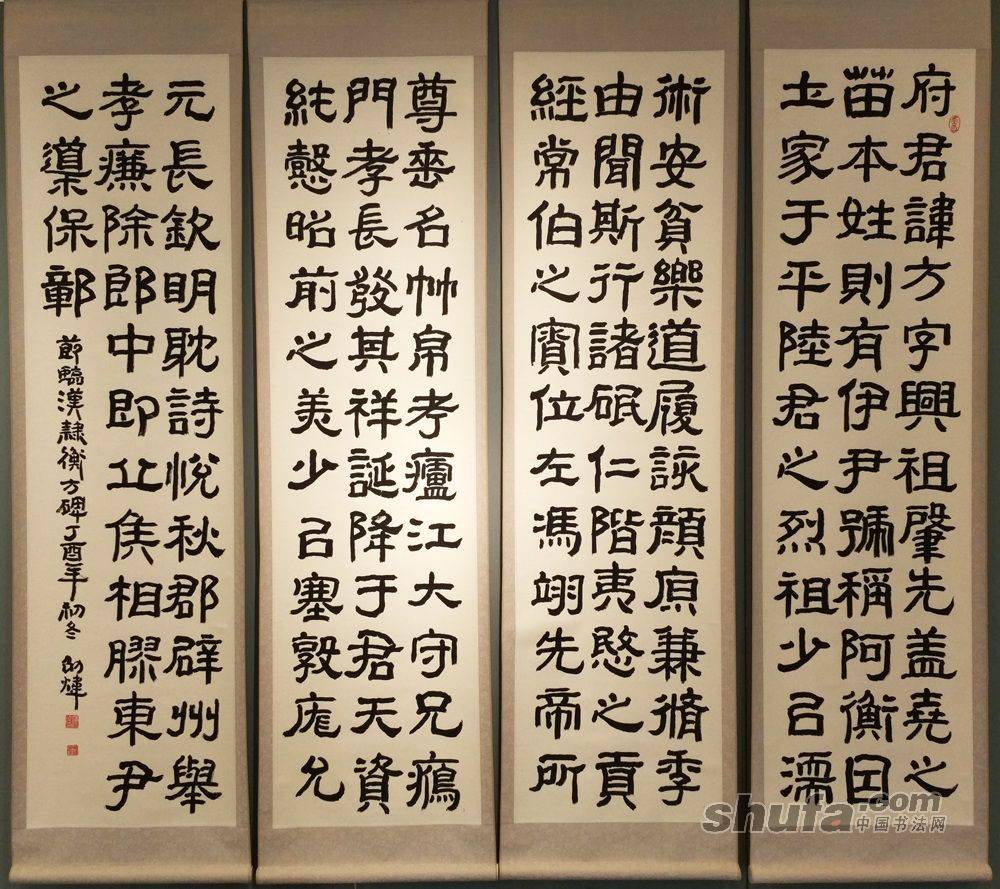 府君諱方字興祖肇先蓋堯之
苗本姓則有伊尹號稱阿衡因
土家于平陸君之烈祖少㠯濡
術安貧樂道履該顏原兼脩季
由聞斯行諸砥仁階夷愍之貢
經常伯之寮位左馮翊先帝所
尊垂名竹帛考廬江大守兄鴈
門孝長發其祥誕降于君天資
純懿昭前之美少㠯塞敦庬允
元長欽明耽詩悅秋郡辟州舉
孝廉除郎中即丘侯相膠東尹
之導保鄣
節臨漢隸衡方碑丁酉年初冬 煒
shufa.com
中国书法网